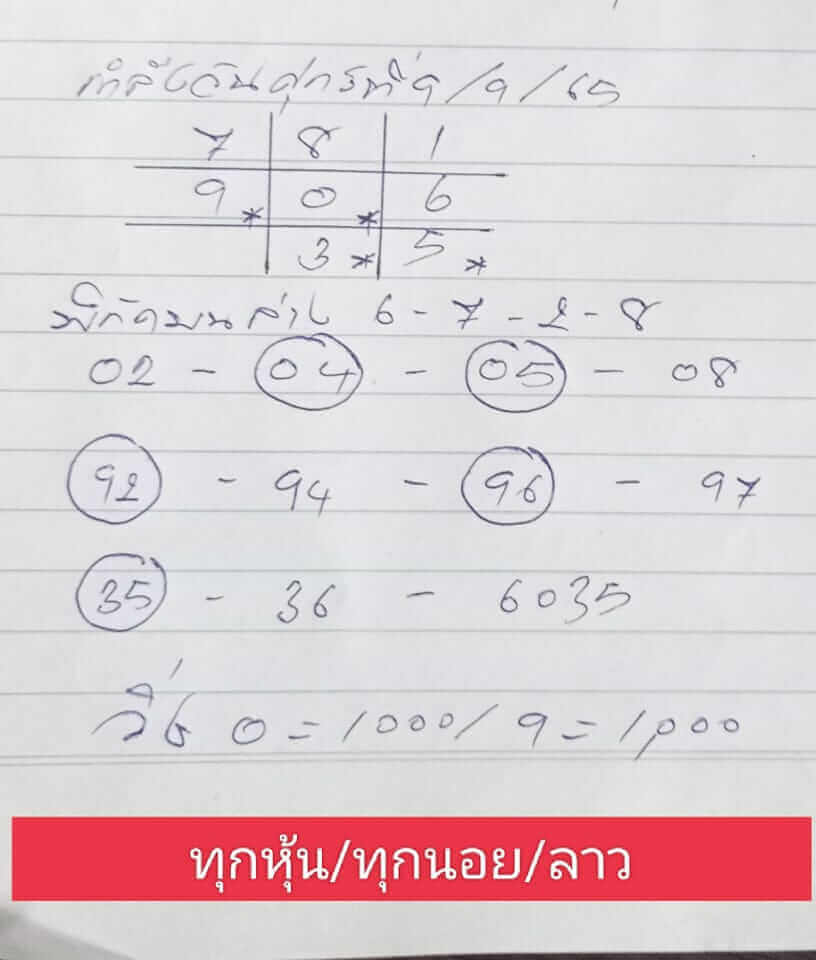 กำลังวันศุกร์ที่ 9/9/65
7 8 1
9 * 0 * 6
3 * 5 *
พิกัดบนล่าง 6-7-2-8
02 - 04 - 05 - 08
92 - 94 - 96 - 97
35 - 36 - 6035
วิ่ง 0 = 1000/9 = 1,000
ทุกหุ้น/ทุกนอย/ลาว